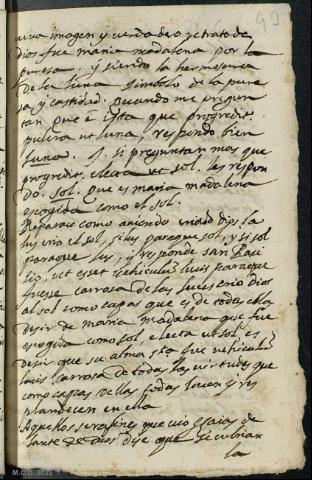 90
viva imagen y verdadero retrato de
Dios fue maria madalena por la
puresa y siendo la hermosura
de la luna simbolo de la pure
sa y castidad. Quando me pregun
tan que es ista que progredit
pulcra ut luna respondo bien
luna. I. si preguntan mas que
progredit. electa ut sol. les respon
do. sol. que es maria madalena
escogida como el sol.
Reparase como aviendo criado dios la
lus crio el sol, si lus paraque sol, y si sol
paraque lus, y responde san Basi
lio, ut esset vehiculum lucis paraque
fuesse carrosa de la lus crio Dios
al sol como capas que es de todas ella
desir de maria madalena que fue
escogida como sol. electa ut sol es
desir que su alma sta fue vehiculum
lucis carrosa de todas las virtudes que
como capas dellas todas lucen y res
plandecen en ella
Aquellos serafines que vio esaias de
lante de Dios dise que se cubrian
la
M.C.D. 2022